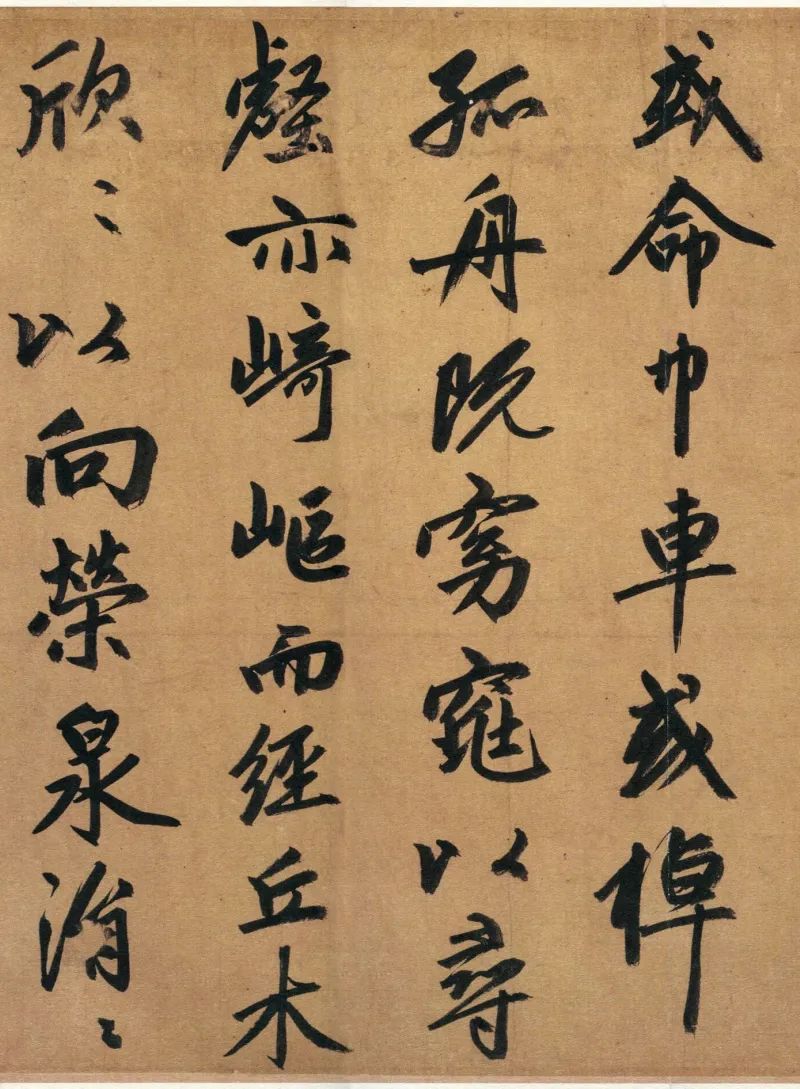 或命巾車或棹
孤舟既窈窕以尋
壑亦崎嶇而經丘木
欣〻以向榮泉涓〻